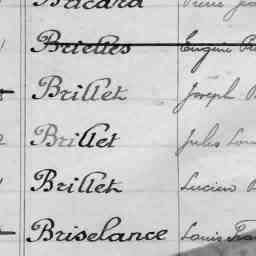 Bricard Pierre
Brielles Eugène
Brillet Joseph
Brillet Jules
Brillet Lucien
Briselance Louis